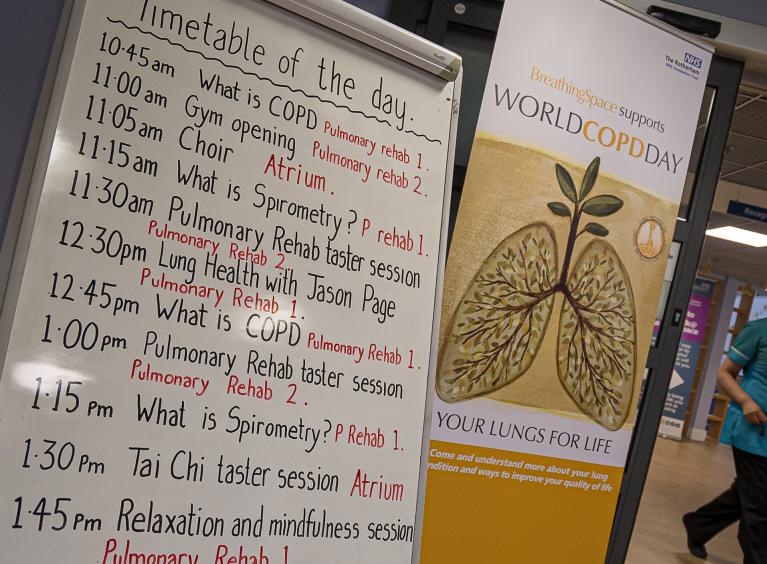 Timetable of the day.
10.45am What is COPD Pulmonary rehab 1.
11:00am Gym opening Pulmonary rehab 2.
11:05am Choir Atrium.
11:15am What is Spirometry? P rehab 1.
11:30am Pulmonary Rehab taster session
Pulmonary Rehab 2.
12:30pm Lung Health with Jason Page
Pulmonary Rehab 1.
12:45pm What is COPD Pulmonary Rehab 1.
1:00pm Pulmonary Rehab taster session
Pulmonary Rehab 2.
1:15 pm What is Spirometry? P Rehab 1.
1:30 pm Tai Chi taster session Atrium
1:45 pm Relaxation and mindfulness session
Pulmonary Rehab 1
NHS
The Rotherham
NHS Foundation Trust
BreathingSpace supports
WORLDCOPDDAY
YOUR LUNGS FOR LIFE
Come and understand more about your lung
ndition and ways to improve your quality of life
Recep